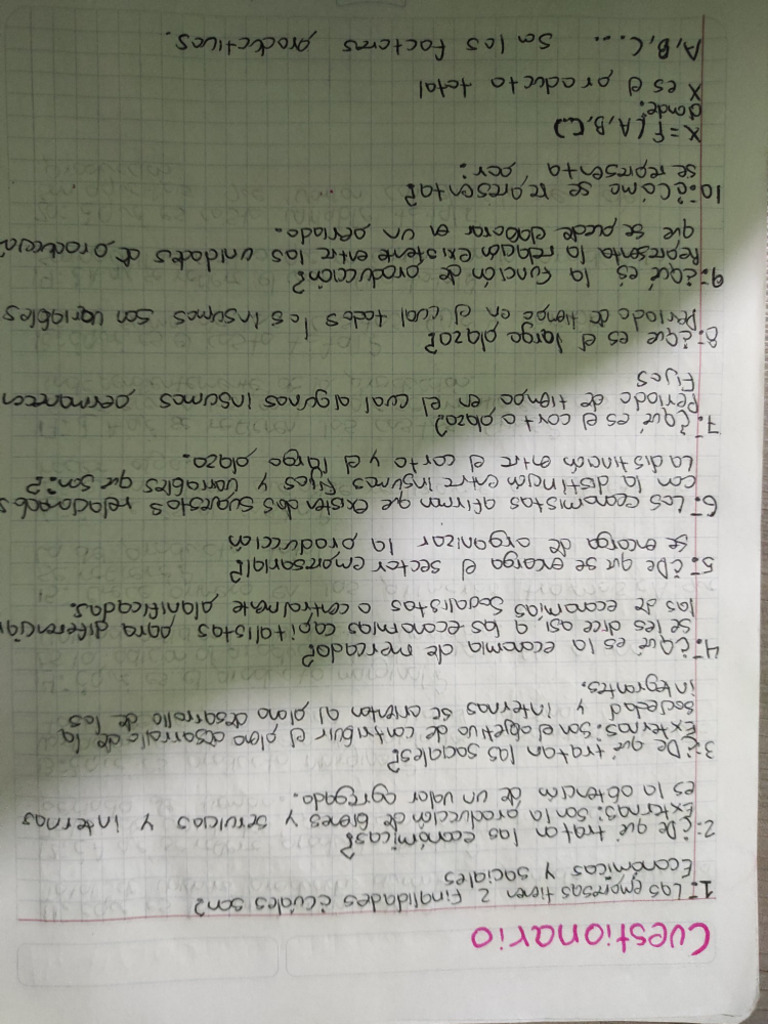 Cuestionario
1: Las empresas tienen 2 finalidades ¿cuáles son?
Económicas y sociales
2: ¿De qué tratan las económicas?
Externas: son la producción de bienes y servicios y internas
es la obtención de un valor agregado.
3: ¿De qué tratan las sociales?
Externas: son el objetivo de contribuir el pleno desarrollo de la
sociedad y internas se orientan al pleno desarrollo de los
integrantes.
4: ¿Qué es la economía de mercado?
se les dice así, a las economías capitalistas para diferenciar
las de economías socialistas o centralmente planificadas.
5: ¿De que se encarga el sector empresarial?
se encarga de organizar la producción
6: Los economistas afirman que existen dos supuestos relacionados
con la distinción entre insumos fijos y variables que son: ?
La distinción entre el corto y el largo plazo.
7: ¿Qué es el corto plazo?
Período de tiempo en el cual algunos insumos permanecen
Fijos
8: ¿Qué es el largo plazo?
Período de tiempo en el cual todos los insumos son variables
9: ¿Qué es la función de producción?
Representa la relación existente entre las unidades de producción
que se puede elaborar en un período.
10: ¿Cómo se representa?
se representa por:
X = F(A, B, C...)
donde:
X es el producto total
A, B, C... Son los factores productivos.